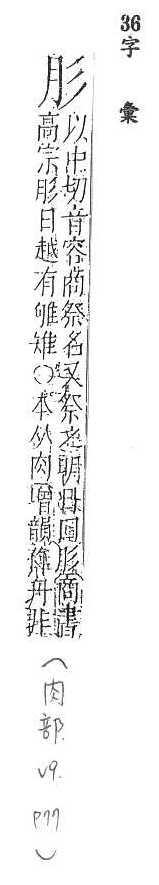 36字彙
肜
以中切音容商祭名又祭之明日曰肜商書
高宗肜日越有雊雉○本从肉增韻從丹非
(肉部. v9. P77)